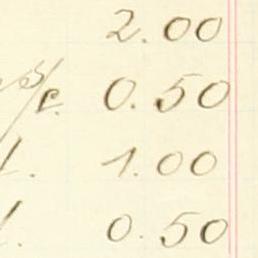 2.00
0.50
1.00
0.50